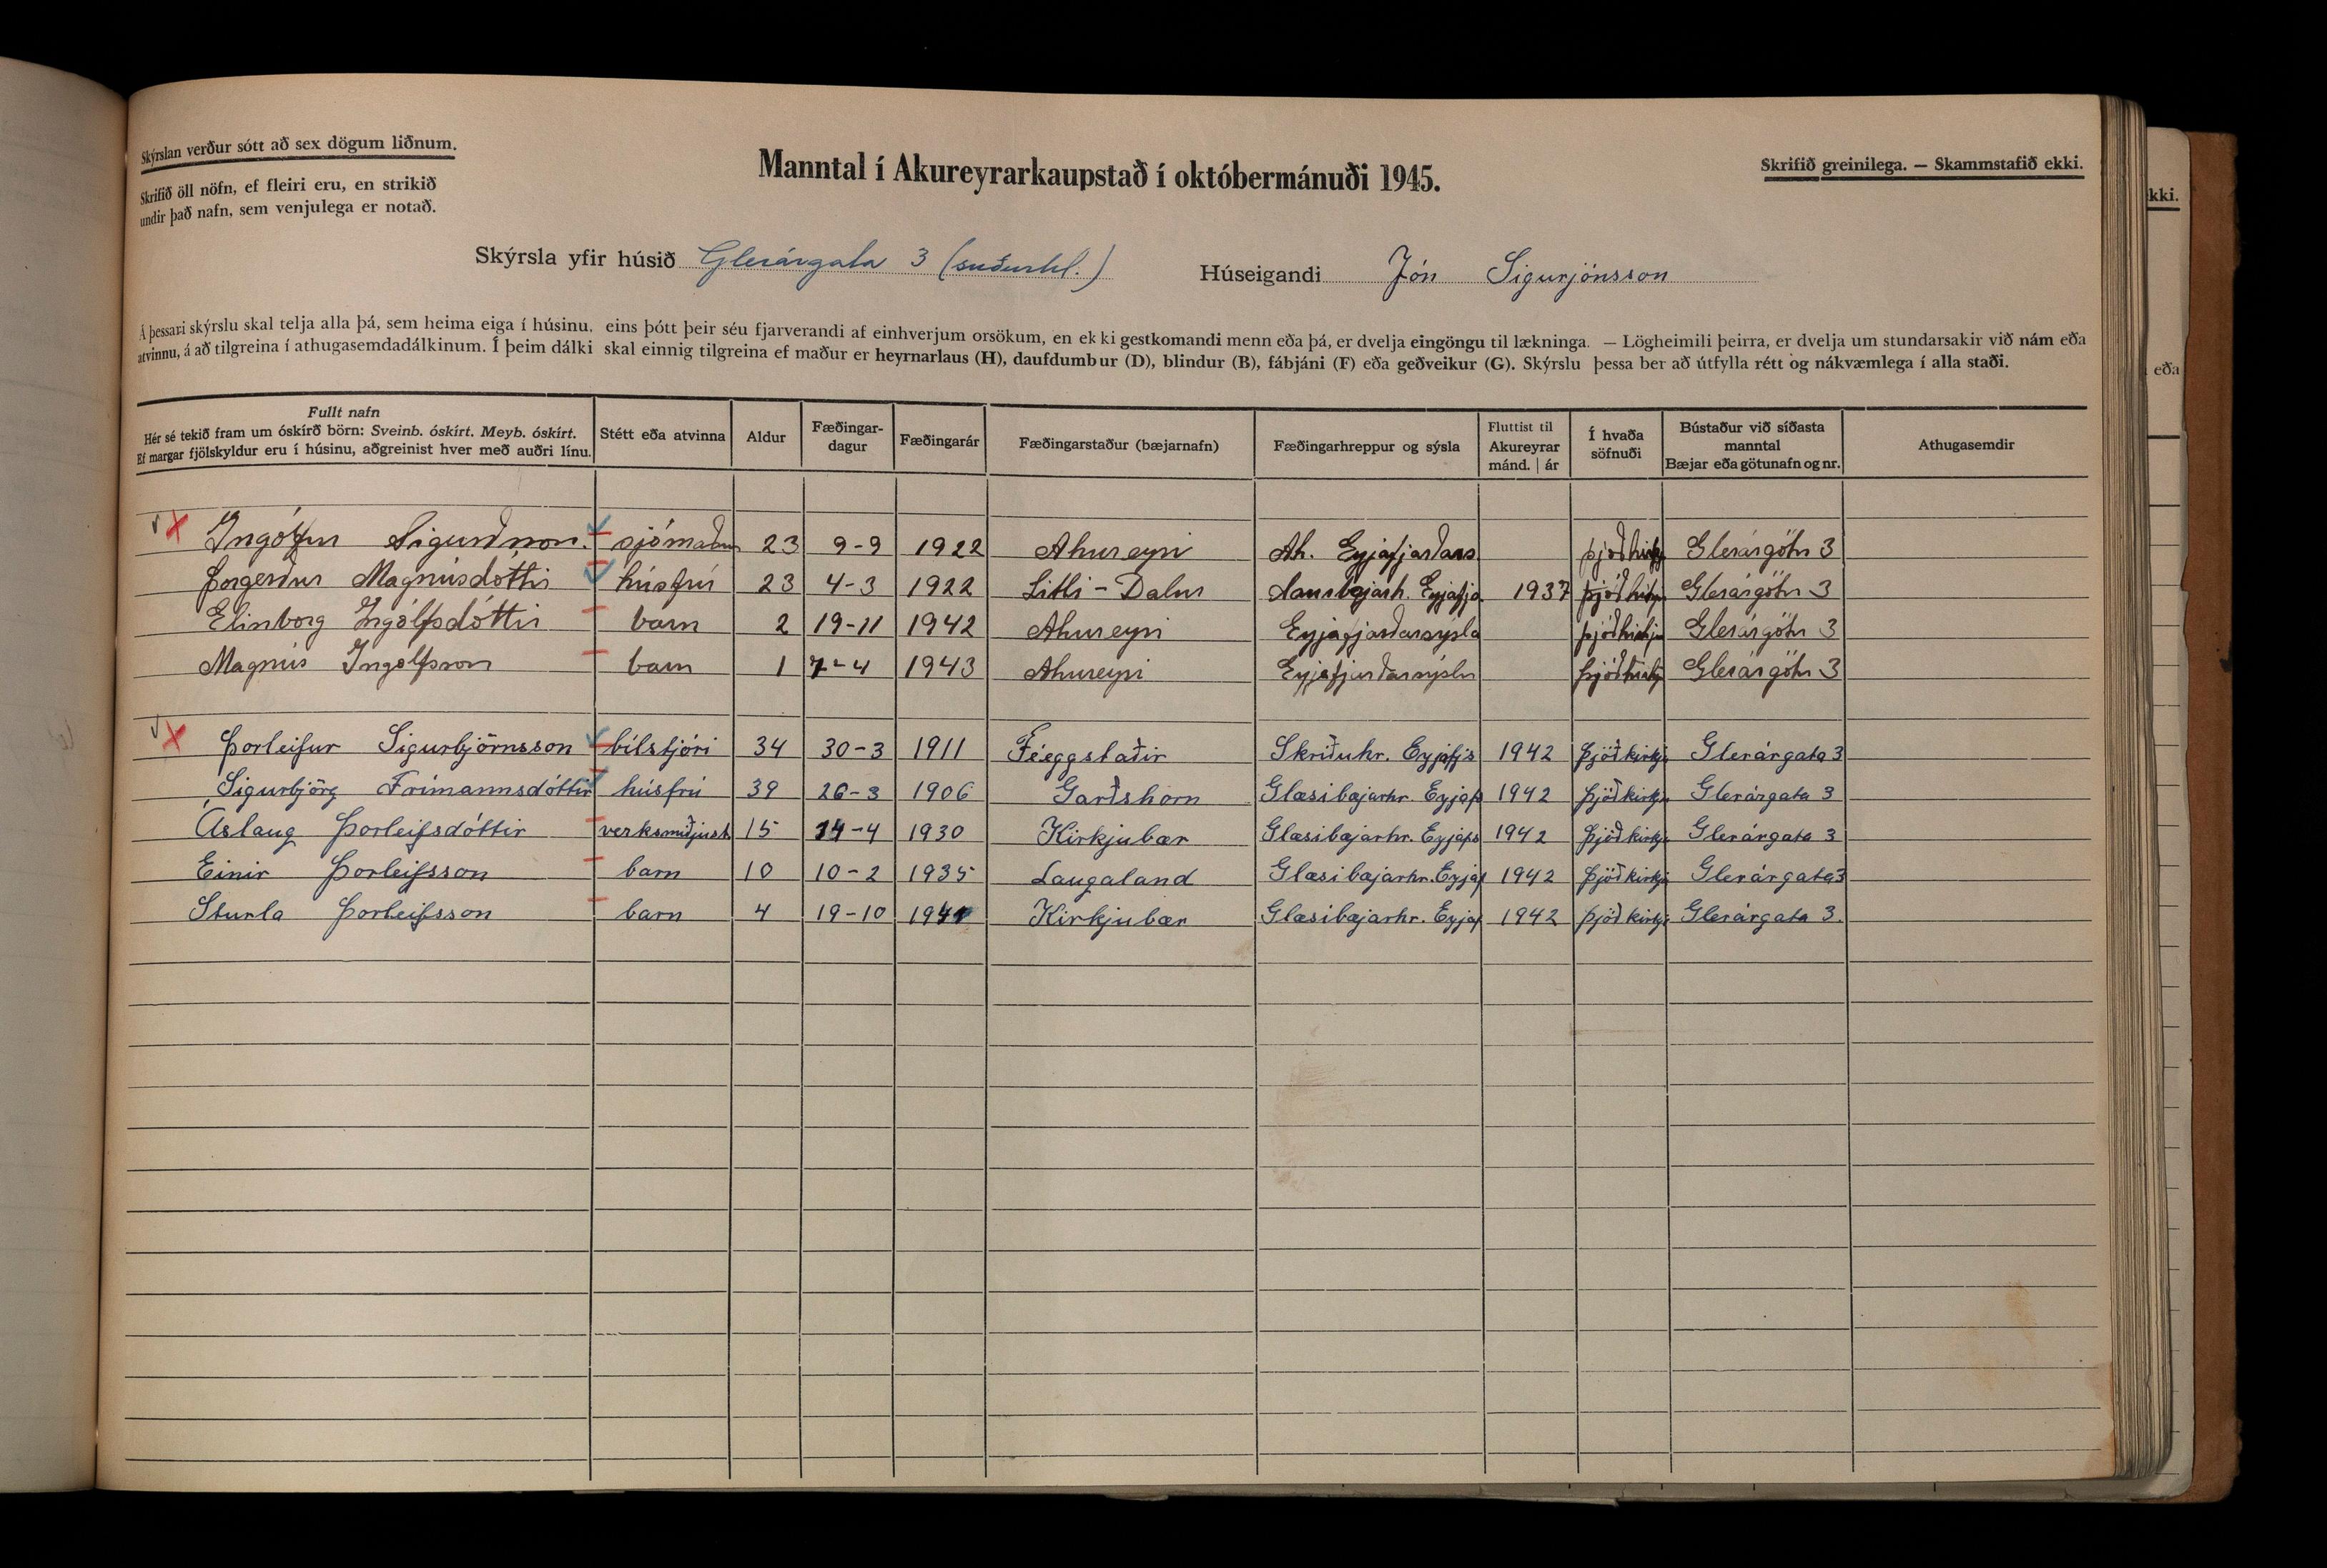 Skýrslan verður sótt að sex dögum liðnum.
Skrifið öll nöfn, ef fleiri eru, en strikið
undir það nafn, sem venjulega er notað.
Manntal í Akureyrarkaupstað í októbermánuði 1945.
Skrifið greinilega. — Skammstafið ekki.
kki.
Skýrsla yfir húsið Glerárgata 3 (suðurhl.)
Húseigandi Jón Sigurjónsson
Á þessari skýrslu skal telja alla þá, sem heima eiga í húsinu, eins þótt þeir séu fjarverandi af einhverjum orsökum, en ekki gestkomandi menn eða þá, er dvelja eingöngu til lækninga. — Lögheimili þeirra, er dvelja um stundarsakir við nám eða
atvinnu, á að tilgreina í athugasemdadálkinum. Í þeim dálki skal einnig tilgreina ef maður er heyrnarlaus (H), daufdumbur (D), blindur (B), fábjáni (F) eða geðveikur (G). Skýrslu þessa ber að útfylla rétt og nákvæmlega í alla staði.
eða
Fullt nafn
Hér sé tekið fram um óskírð börn: Sveinb. óskírt. Meyb. óskírt.
Ef margar fjölskyldur eru í húsinu, aðgreinist hver með auðri línu.
Stétt eða atvinna
Aldur
Fæðingar-
dagur
Fæðingarár
Fæðingarstaður (bæjarnafn)
Fæðingarhreppur og sýsla
Fluttist til
Akureyrar
mánd. | ár
Í hvaða
söfnuði
Bústaður við síðasta
manntal
Bæjar eða götunafn og nr.
Athugasemdir
Ingólfur Sigurðsson. sjómaður 23 9-9 1922 Akureyri Ak. Eyjafjarðars þjóðkirkj Glerárgötu 3
Þorgerður Magnúsdóttir húsfrú 23 4-3 1922 Litli-Dalur Saurbæjarh. Eyjafja 1937 þjóðkirkju Glerárgötu 3
Elinborg Ingólfsdóttir barn 2 19-11 1942 Akureyri Eyjafjarðarsýsla þjóðkirkju Glerárgötu 3
Magnús Ingólfsson barn 1 7-4 1943 Akureyri Eyjafjarðarsýslu þjóðkirkj Glerárgötu 3
Þorleifur Sigurbjörnsson bílstjóri 34 30-3 1911 Féeggstaðir Skriðuhr. Eyjafjs 1942 Þjóðkirkj Glerárgata 3
Sigurbjörg Frímannsdóttir húsfrú 39 26-3 1906 Garðshorn Glæsibæjarhr. Eyjafs 1942 Þjóðkirkj Glerárgata 3
Áslaug Þorleifsdóttir verksmiðjust 15 14-4 1930 Kirkjubær Glæsibæjarhr. Eyjafs 1942 Þjóðkirkj Glerárgata 3
Einir Þorleifsson barn 10 10-2 1935 Laugaland Glæsibæjarhr. Eyjaf 1942 Þjóðkirkj Glerárgata 3
Sturla Þorleifsson barn 4 19-10 1941 Kirkjubær Glæsibæjarhr. Eyjaf 1942 Þjóðkirkj Glerárgata 3.